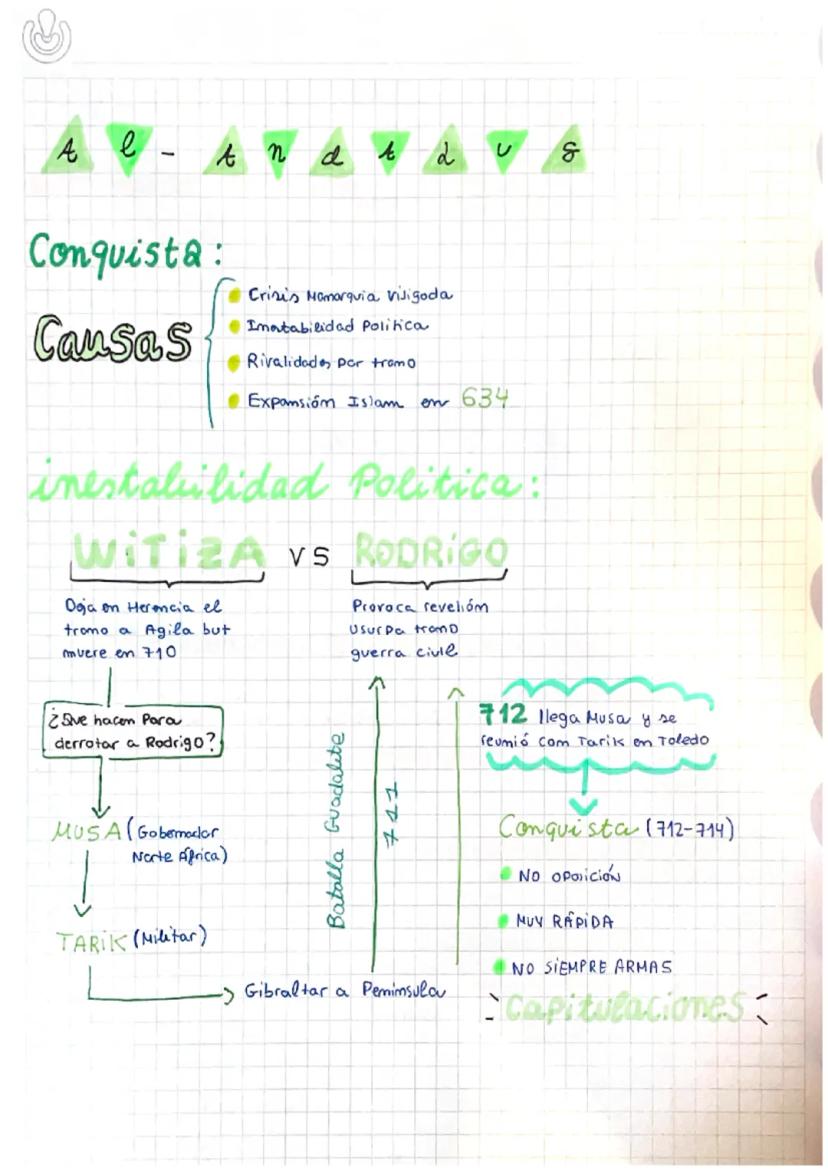 Al-Andalus
Conquista:
Causas
Crisis Monarquia Visigoda
Inestabilidad Politica
Rivalidades por trono
Expansión Islam en 634
inestabilidad Politica:
WITIZA vs RODRIGO
Deja en Herencia el
trono a Agila but
muere en 710
Provoca revelión
usurpa trono
guerra civil
¿Que hacen Para
derrotar a Rodrigo?
MUSA (Gobernador
Norte África)
TARIK (Militar)
Gibraltar a Peninsula
Batalla Guadalete
711
712 llega Musa y se
reunió con Tarik en Toledo
Conquista (712-714)
NO oposición
MUY RÁPIDA
NO SIEMPRE ARMAS
Capitulaciones